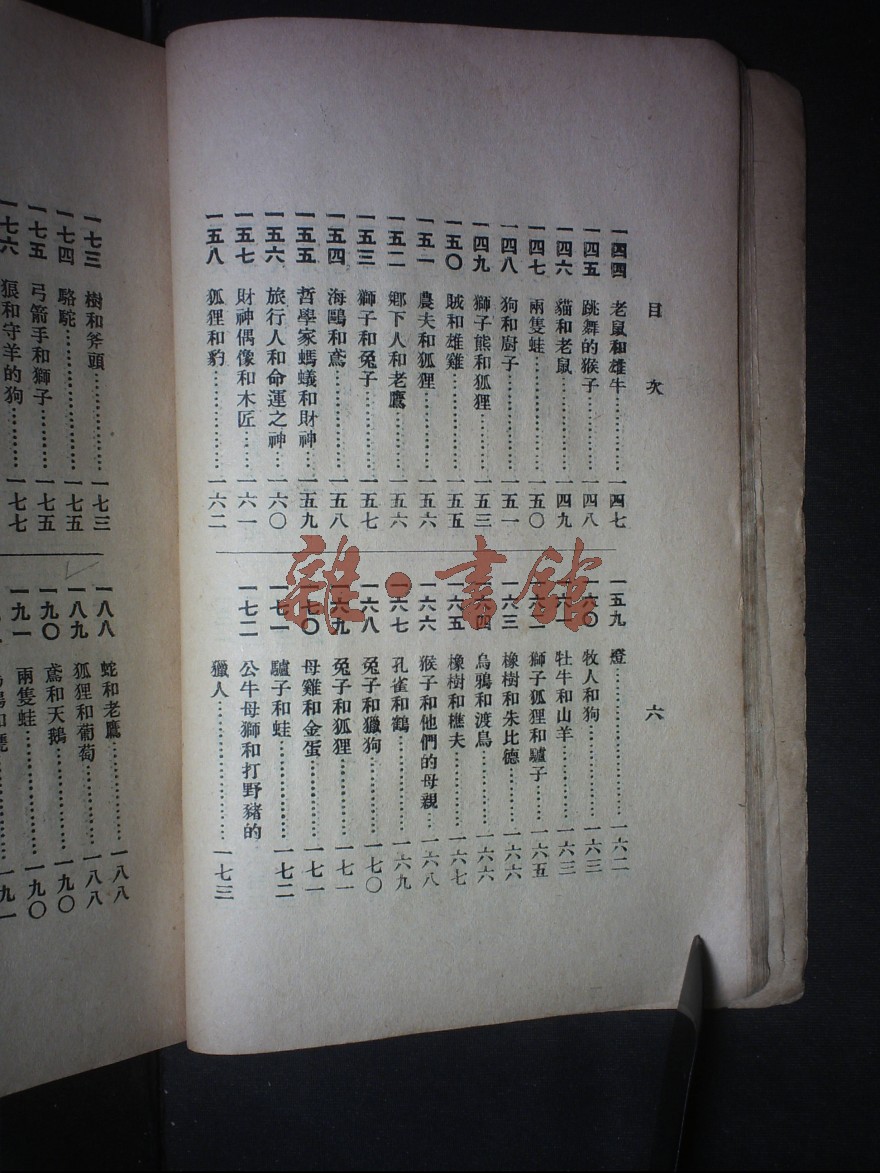 目次
六
一四四 老鼠和雄牛……一四七
一四五 跳舞的猴子……一四八
一四六 貓和老鼠……一四九
一四七 兩隻蛙……一五〇
一四八 狗和厨子……一五一
一四九 獅子熊和狐狸……一五三
一五〇 賊和雄雞……一五五
一五一 農夫和狐狸……一五六
一五二 鄉下人和老鷹……一五六
一五三 獅子和兔子……一五七
一五四 海鷗和鳶……一五八
一五五 哲學家螞蟻和財神……一五九
一五六 旅行人和命運之神……一六〇
一五七 財神偶像和木匠……一六一
一五八 狐狸和豹……一六二
一五九 燈……一六二
一六〇 牧人和狗……一六三
一六一 牡牛和山羊……一六三
一六二 獅子狐狸和驢子……一六五
一六三 橡樹和朱比德……一六六
一六四 烏鴉和渡鳥……一六六
一六五 橡樹和樵夫……一六七
一六六 猴子和他們的母親……一六八
一六七 孔雀和鶴……一六九
一六八 兔子和獵狗……一七〇
一六九 兔子和狐狸……一七一
一七〇 母雞和金蛋……一七一
一七一 驢子和蛙……一七二
一七二 公牛母獅和打野豬的
獵人……一七三
一七三 樹和斧頭……一七三
一七四 駱駝……一七五
一七五 弓箭手和獅子……一七五
一七六 狼和守羊的狗……一七七
一八八 蛇和老鷹……一八八
一八九 狐狸和葡萄……一八八
一九〇 鳶和天鵝……一九〇
一九一 兩隻蛙……一九〇
一九一
雜·書館